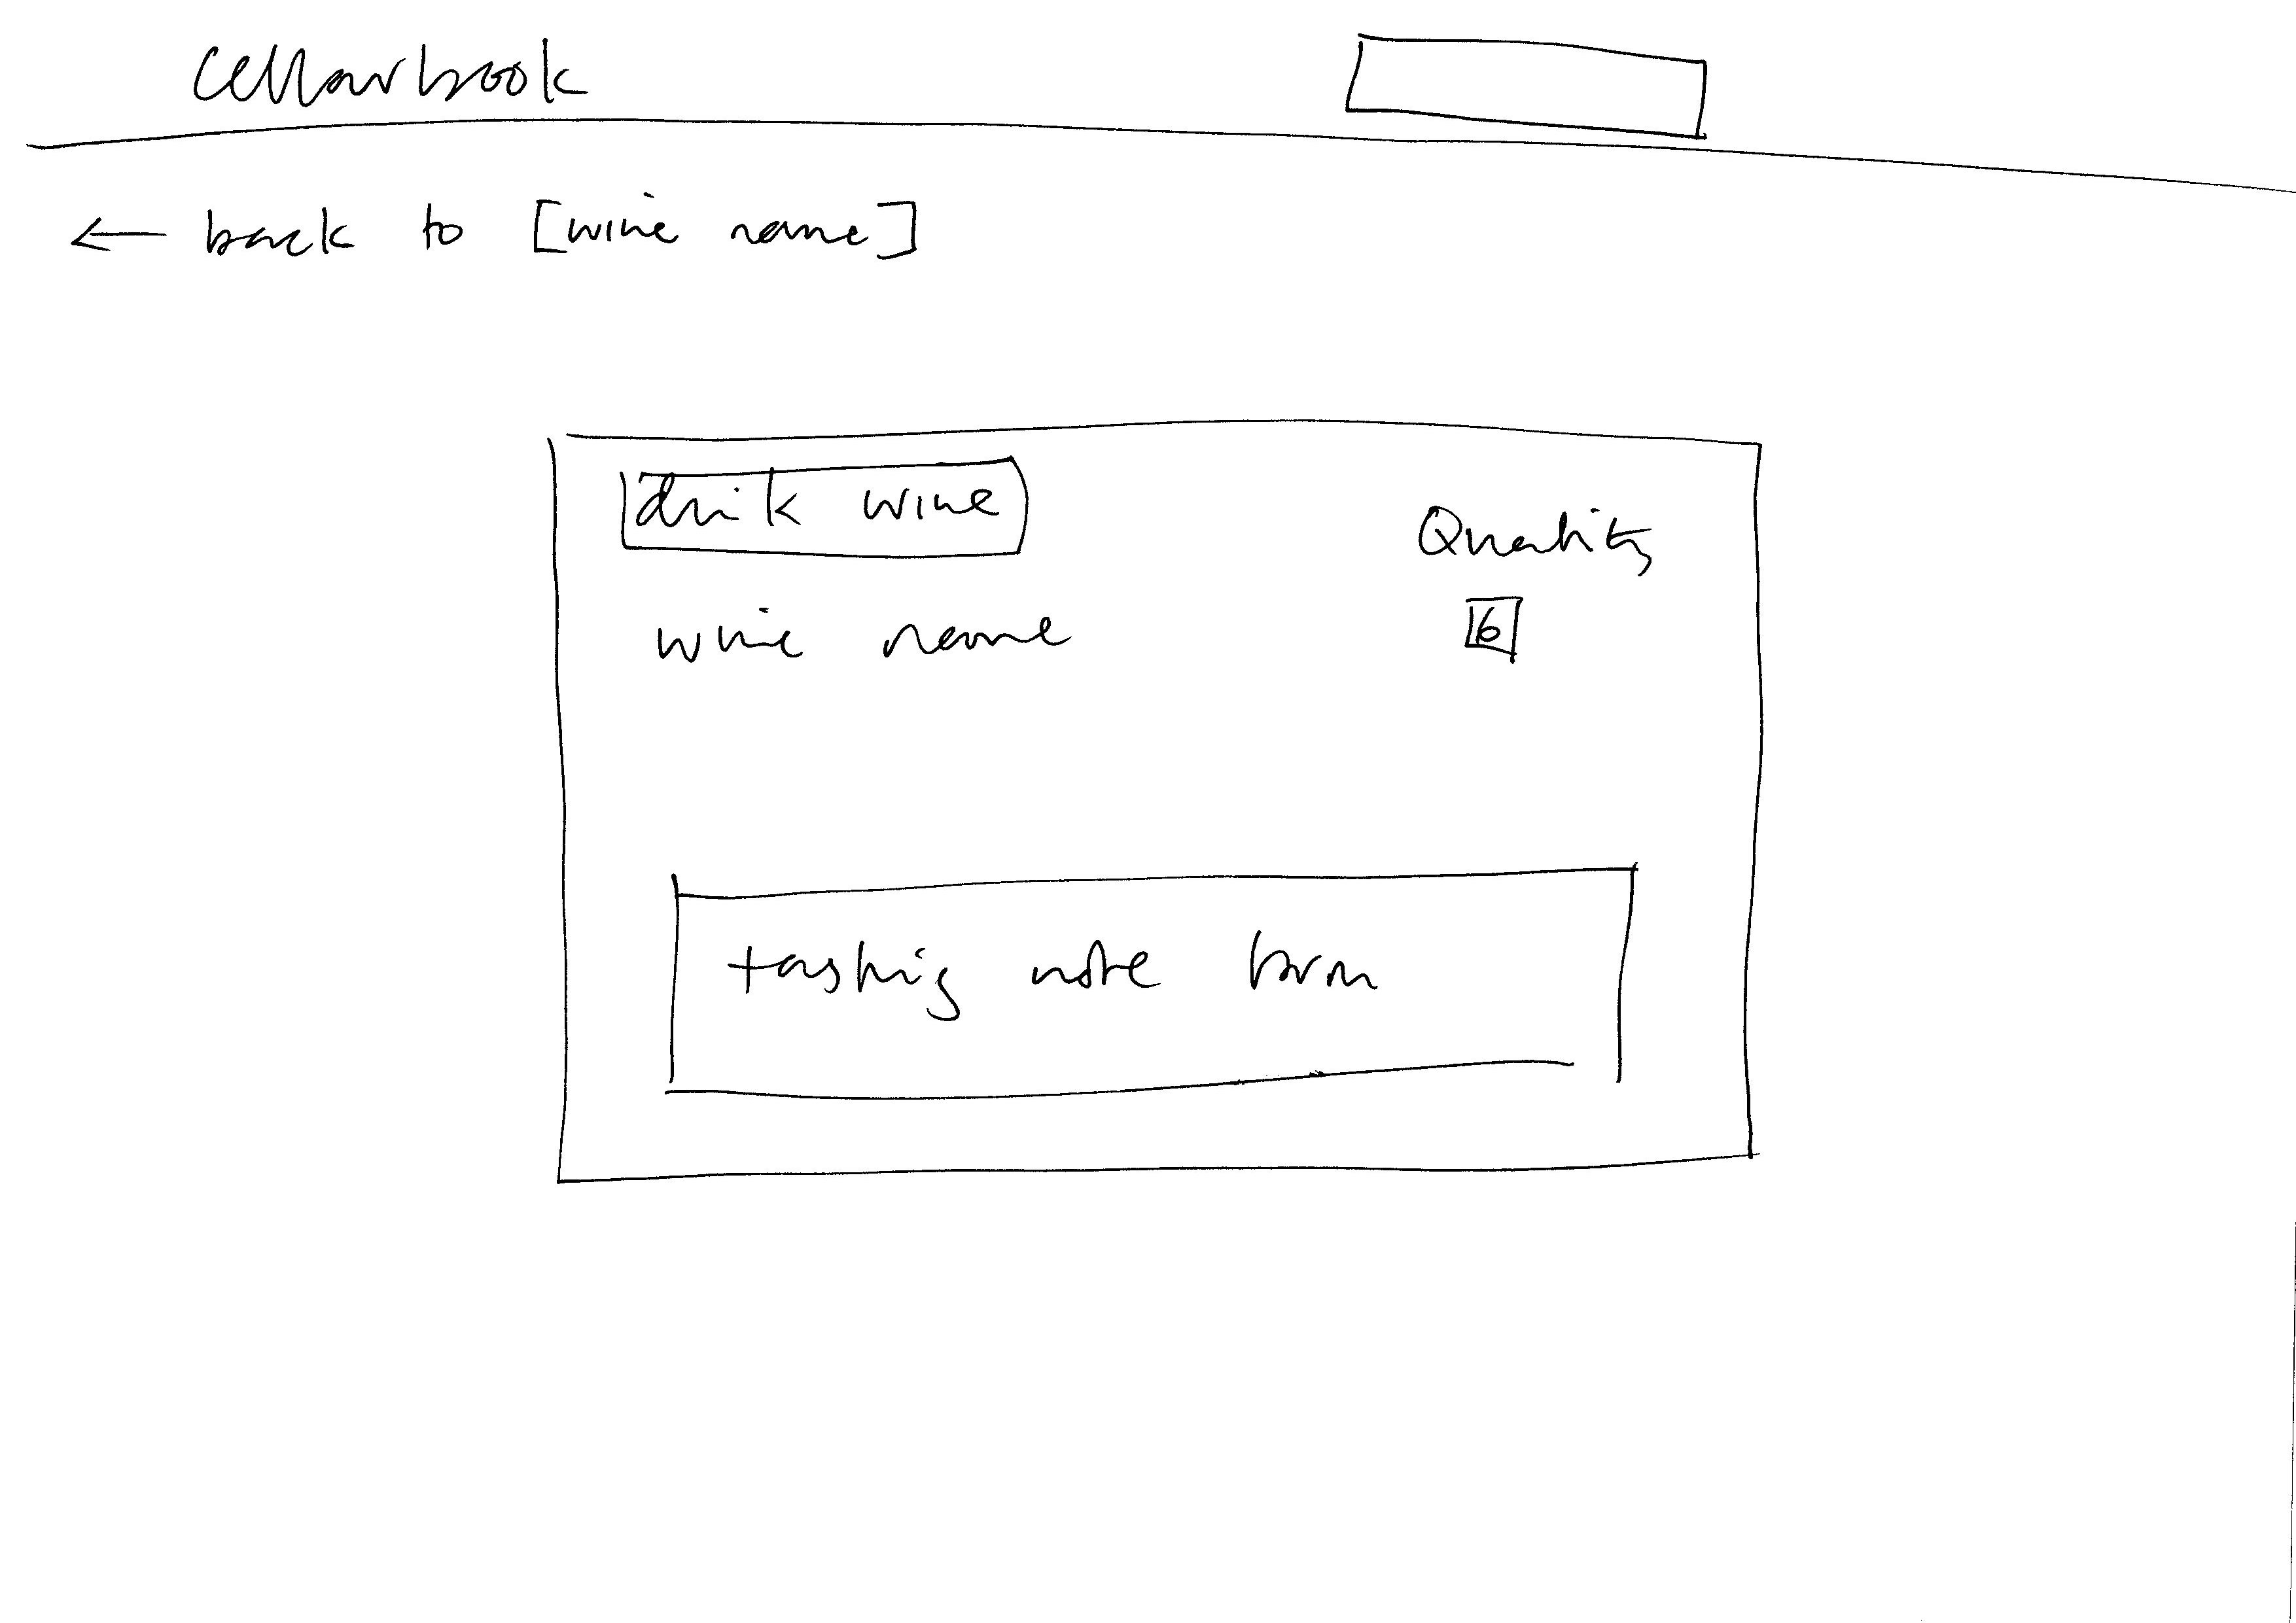 cellarbook
← back to [wine name]
drink wine
Quantity
wine name
6
tasting note form